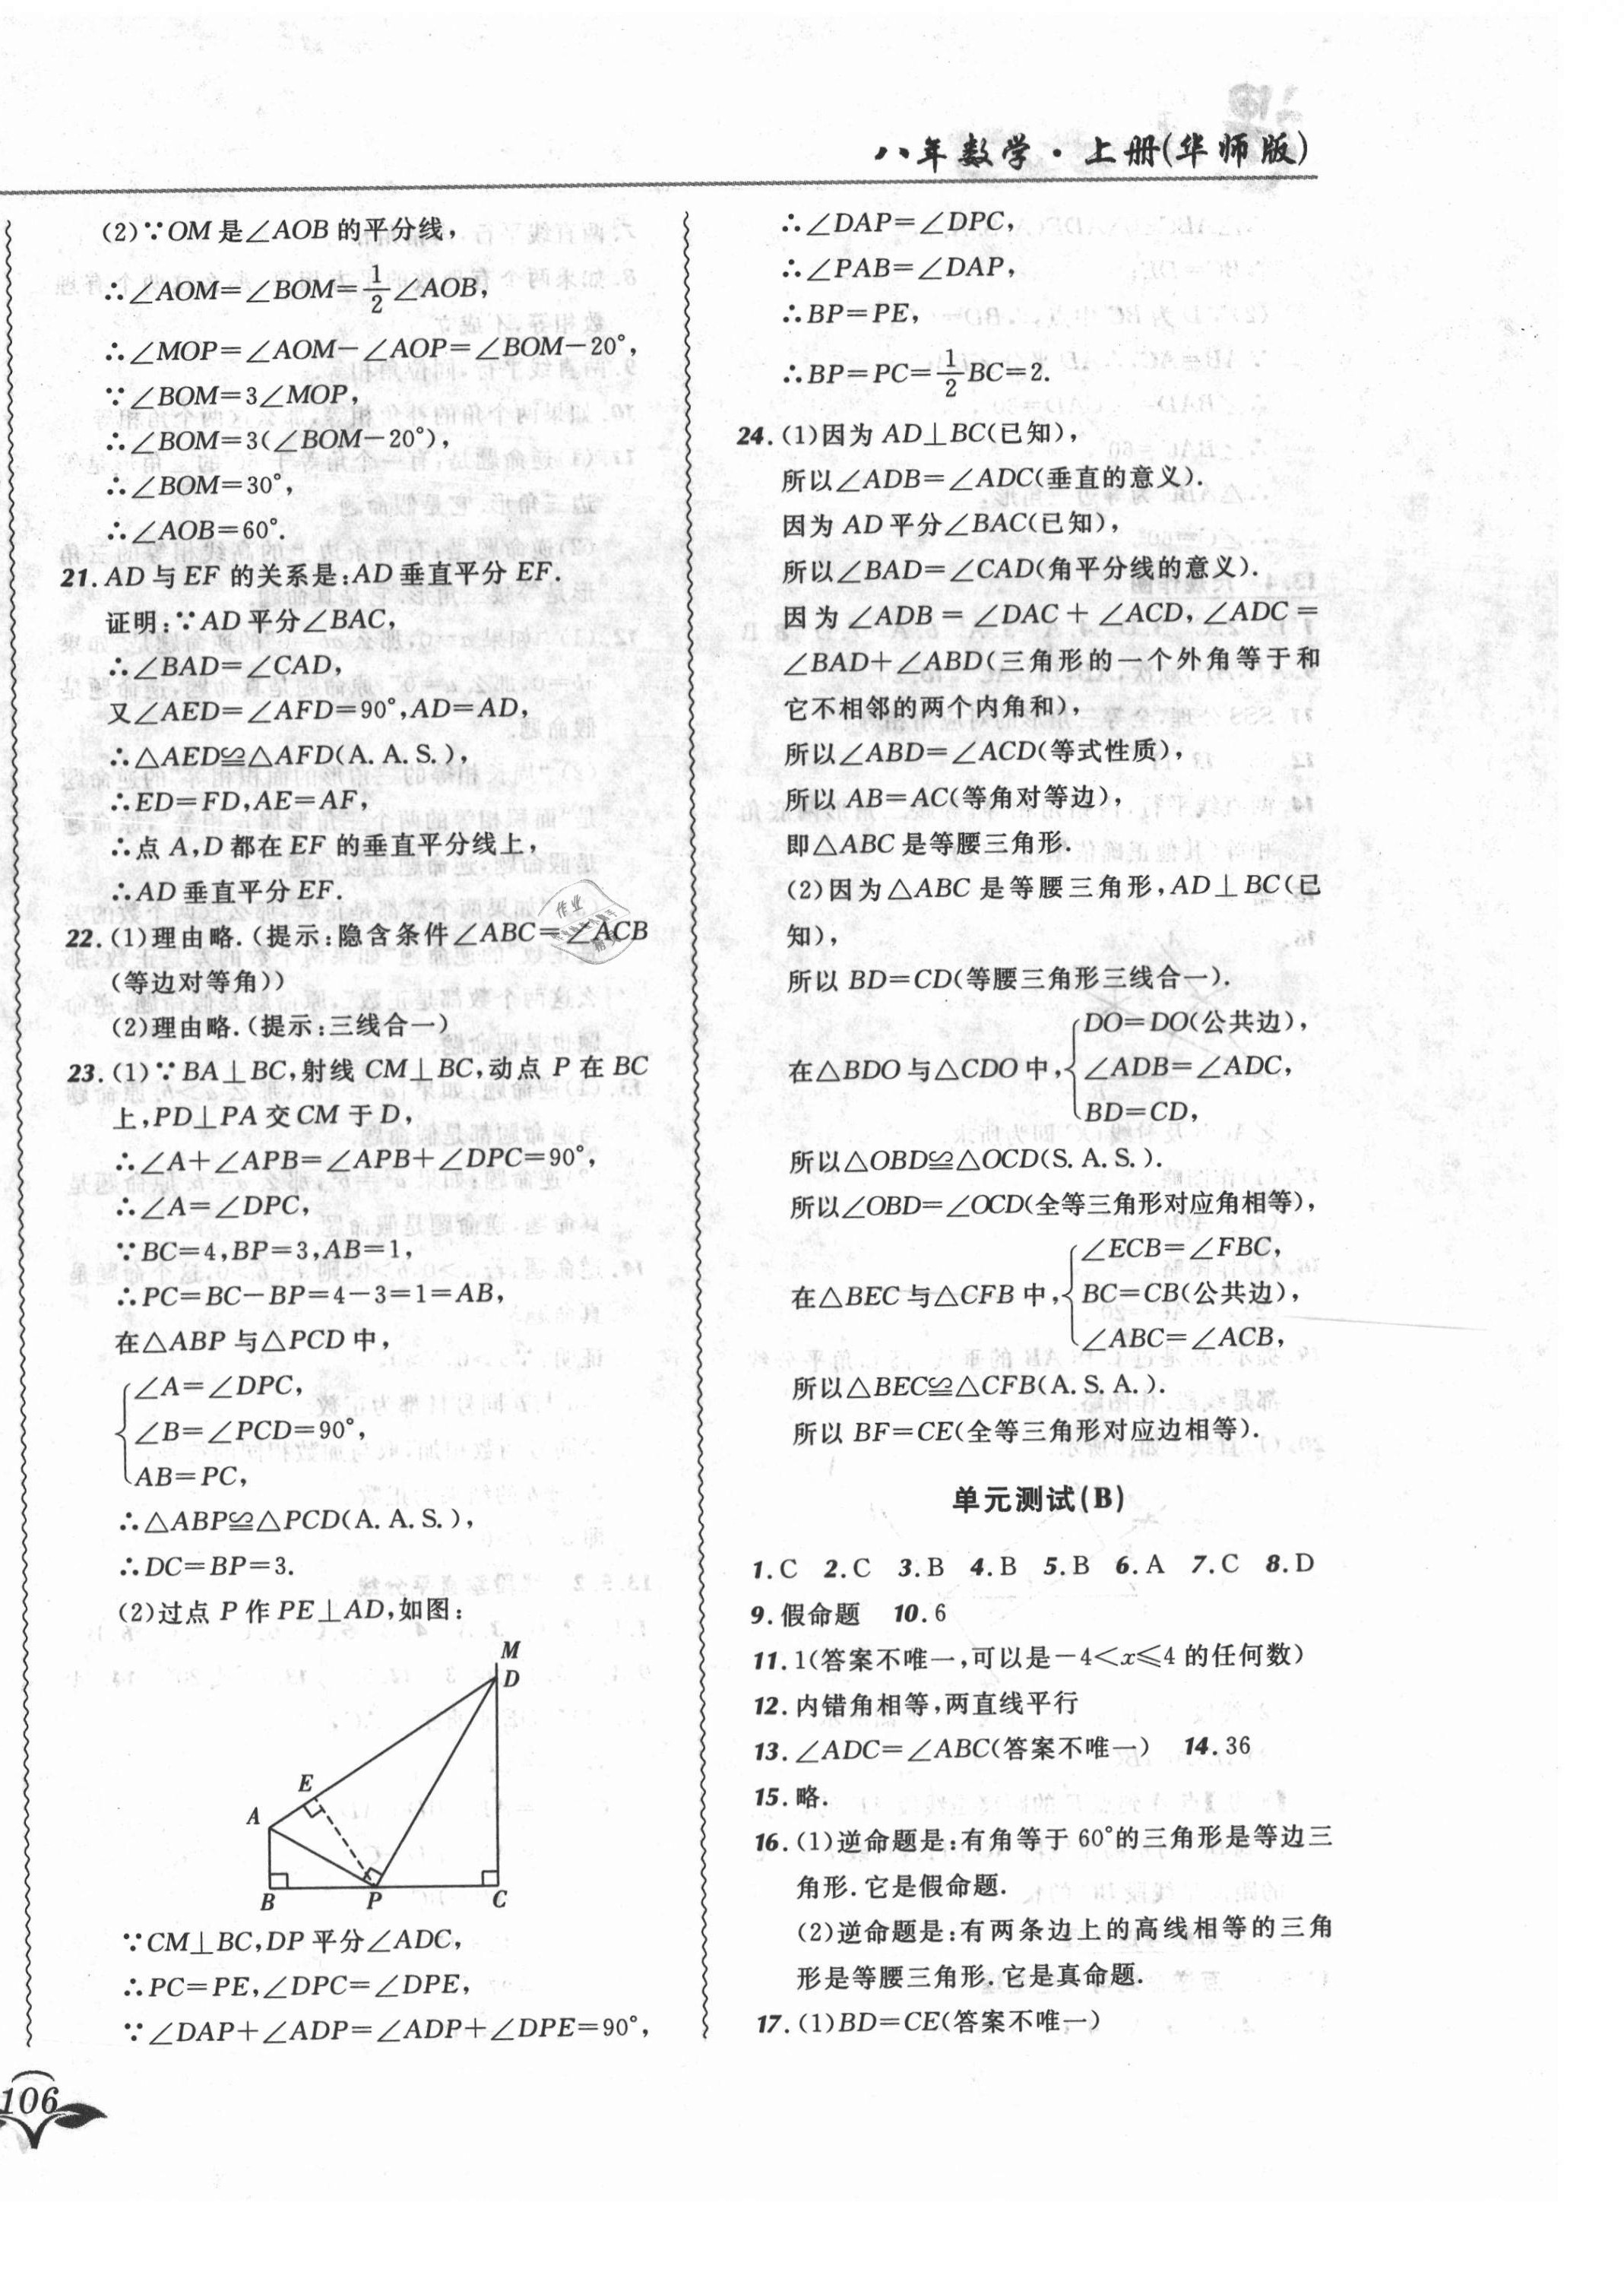 八年数学·上册(华师版)
(2)∵OM是∠AOB的平分线,
∴∠AOM=∠BOM=1/2∠AOB,
∴∠MOP=∠AOM-∠AOP=∠BOM-20°,
∵∠BOM=3∠MOP,
∴∠BOM=3(∠BOM-20°),
∴∠BOM=30°,
∴∠AOB=60°.
21.AD与EF的关系是:AD垂直平分EF.
证明:∵AD平分∠BAC,
∴∠BAD=∠CAD,
又∠AED=∠AFD=90°,AD=AD,
∴△AED≌△AFD(A.A.S.),
∴ED=FD,AE=AF,
∴点A,D都在EF的垂直平分线上,
∴AD垂直平分EF.
22.(1)理由略.(提示:隐含条件∠ABC=∠ACB
(等边对等角))
(2)理由略.(提示:三线合一)
23.(1)∵BA⊥BC,射线CM⊥BC,动点P在BC
上,PD⊥PA交CM于D,
∴∠A+∠APB=∠APB+∠DPC=90°,
∴∠A=∠DPC,
∵BC=4,BP=3,AB=1,
∴PC=BC-BP=4-3=1=AB,
在△ABP与△PCD中,
∠A=∠DPC,
∠B=∠PCD=90°,
AB=PC,
∴△ABP≌△PCD(A.A.S.),
∴DC=BP=3.
(2)过点P作PE⊥AD,如图:
M
D
E
A
B
P
C
∵CM⊥BC,DP平分∠ADC,
∴PC=PE,∠DPC=∠DPE,
∵∠DAP+∠ADP=∠ADP+∠DPE=90°,
106
∴∠DAP=∠DPC,
∴∠PAB=∠DAP,
∴BP=PE,
∴BP=PC=1/2BC=2.
24.(1)因为AD⊥BC(已知),
所以∠ADB=∠ADC(垂直的意义).
因为AD平分∠BAC(已知),
所以∠BAD=∠CAD(角平分线的意义).
因为∠ADB=∠DAC+∠ACD,∠ADC=
∠BAD+∠ABD(三角形的一个外角等于和
它不相邻的两个内角和),
所以∠ABD=∠ACD(等式性质),
所以AB=AC(等角对等边),
即△ABC是等腰三角形.
(2)因为△ABC是等腰三角形,AD⊥BC(已
知),
所以BD=CD(等腰三角形三线合一).
DO=DO(公共边),
在△BDO与△CDO中,∠ADB=∠ADC,
BD=CD,
所以△OBD≌△OCD(S.A.S.).
所以∠OBD=∠OCD(全等三角形对应角相等),
∠ECB=∠FBC,
在△BEC与△CFB中,BC=CB(公共边),
∠ABC=∠ACB,
所以△BEC≌△CFB(A.S.A.).
所以BF=CE(全等三角形对应边相等).
单元测试(B)
1.C 2.C 3.B 4.B 5.B 6.A 7.C 8.D
9.假命题 10.6
11.1(答案不唯一,可以是-4<x≤4的任何数)
12.内错角相等,两直线平行
13.∠ADC=∠ABC(答案不唯一) 14.36
15.略.
16.(1)逆命题是:有角等于60°的三角形是等边三
角形.它是假命题.
(2)逆命题是:有两条边上的高线相等的三角
形是等腰三角形.它是真命题.
17.(1)BD=CE(答案不唯一)